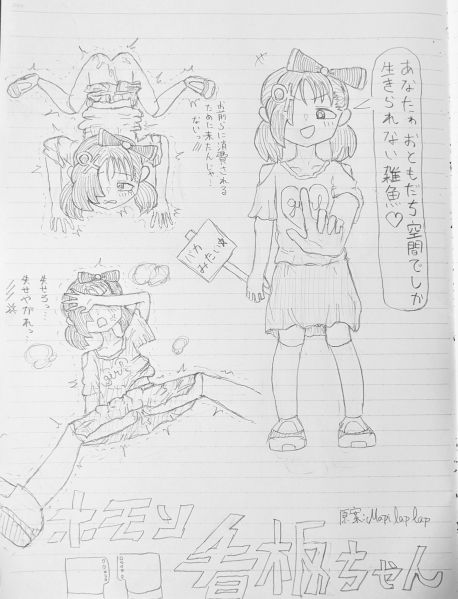 あなたゎおともだち空間でしか
生きられない雑魚♡
お前らに消費される
ために来たんじゃ
ないっ//
バカ
みたい☆
失せろっ…
失せやがれっ…
ホモソ
看板ちゃん
原案:Mapi lap lap